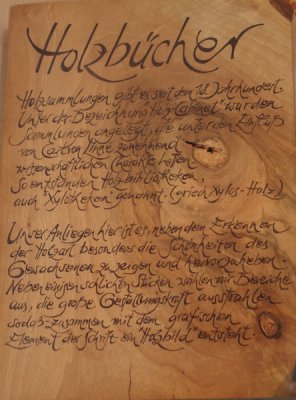 Holzbücher
Holzsammlungen gibt es seit dem 18. Jahrhundert.
Unter der Bezeichnung "Holz-Cabinet" wurden
Sammlungen angelegt, die unter dem Einfluß
von Carl von Linné zunehmend
wissenschaftlichen Charakter hatten.
So entstanden Holzbibliotheken,
auch "Xylotheken" genannt. (griech. Xylos = Holz)
Unser Anliegen hier ist es, neben dem Erkennen
der Holzart besonders die Schönheiten des
Gewachsenen zu zeigen und hervorzuheben.
Neben einigen schlichten Stücken wählen wir Bereiche
aus, die große Gestaltungskraft ausstrahlen
sodaß zusammen mit dem grafischen
Element der Schrift ein "Holzbild" entsteht.